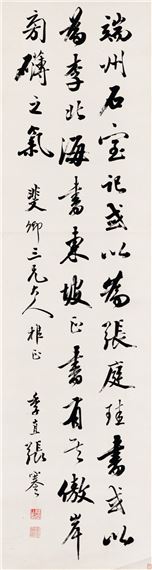 端州石室記或以為張庭珪書或以
為李北海書東坡正書有其傲岸
旁礴之氣
斐卿三兄大人雅正
季直張謇